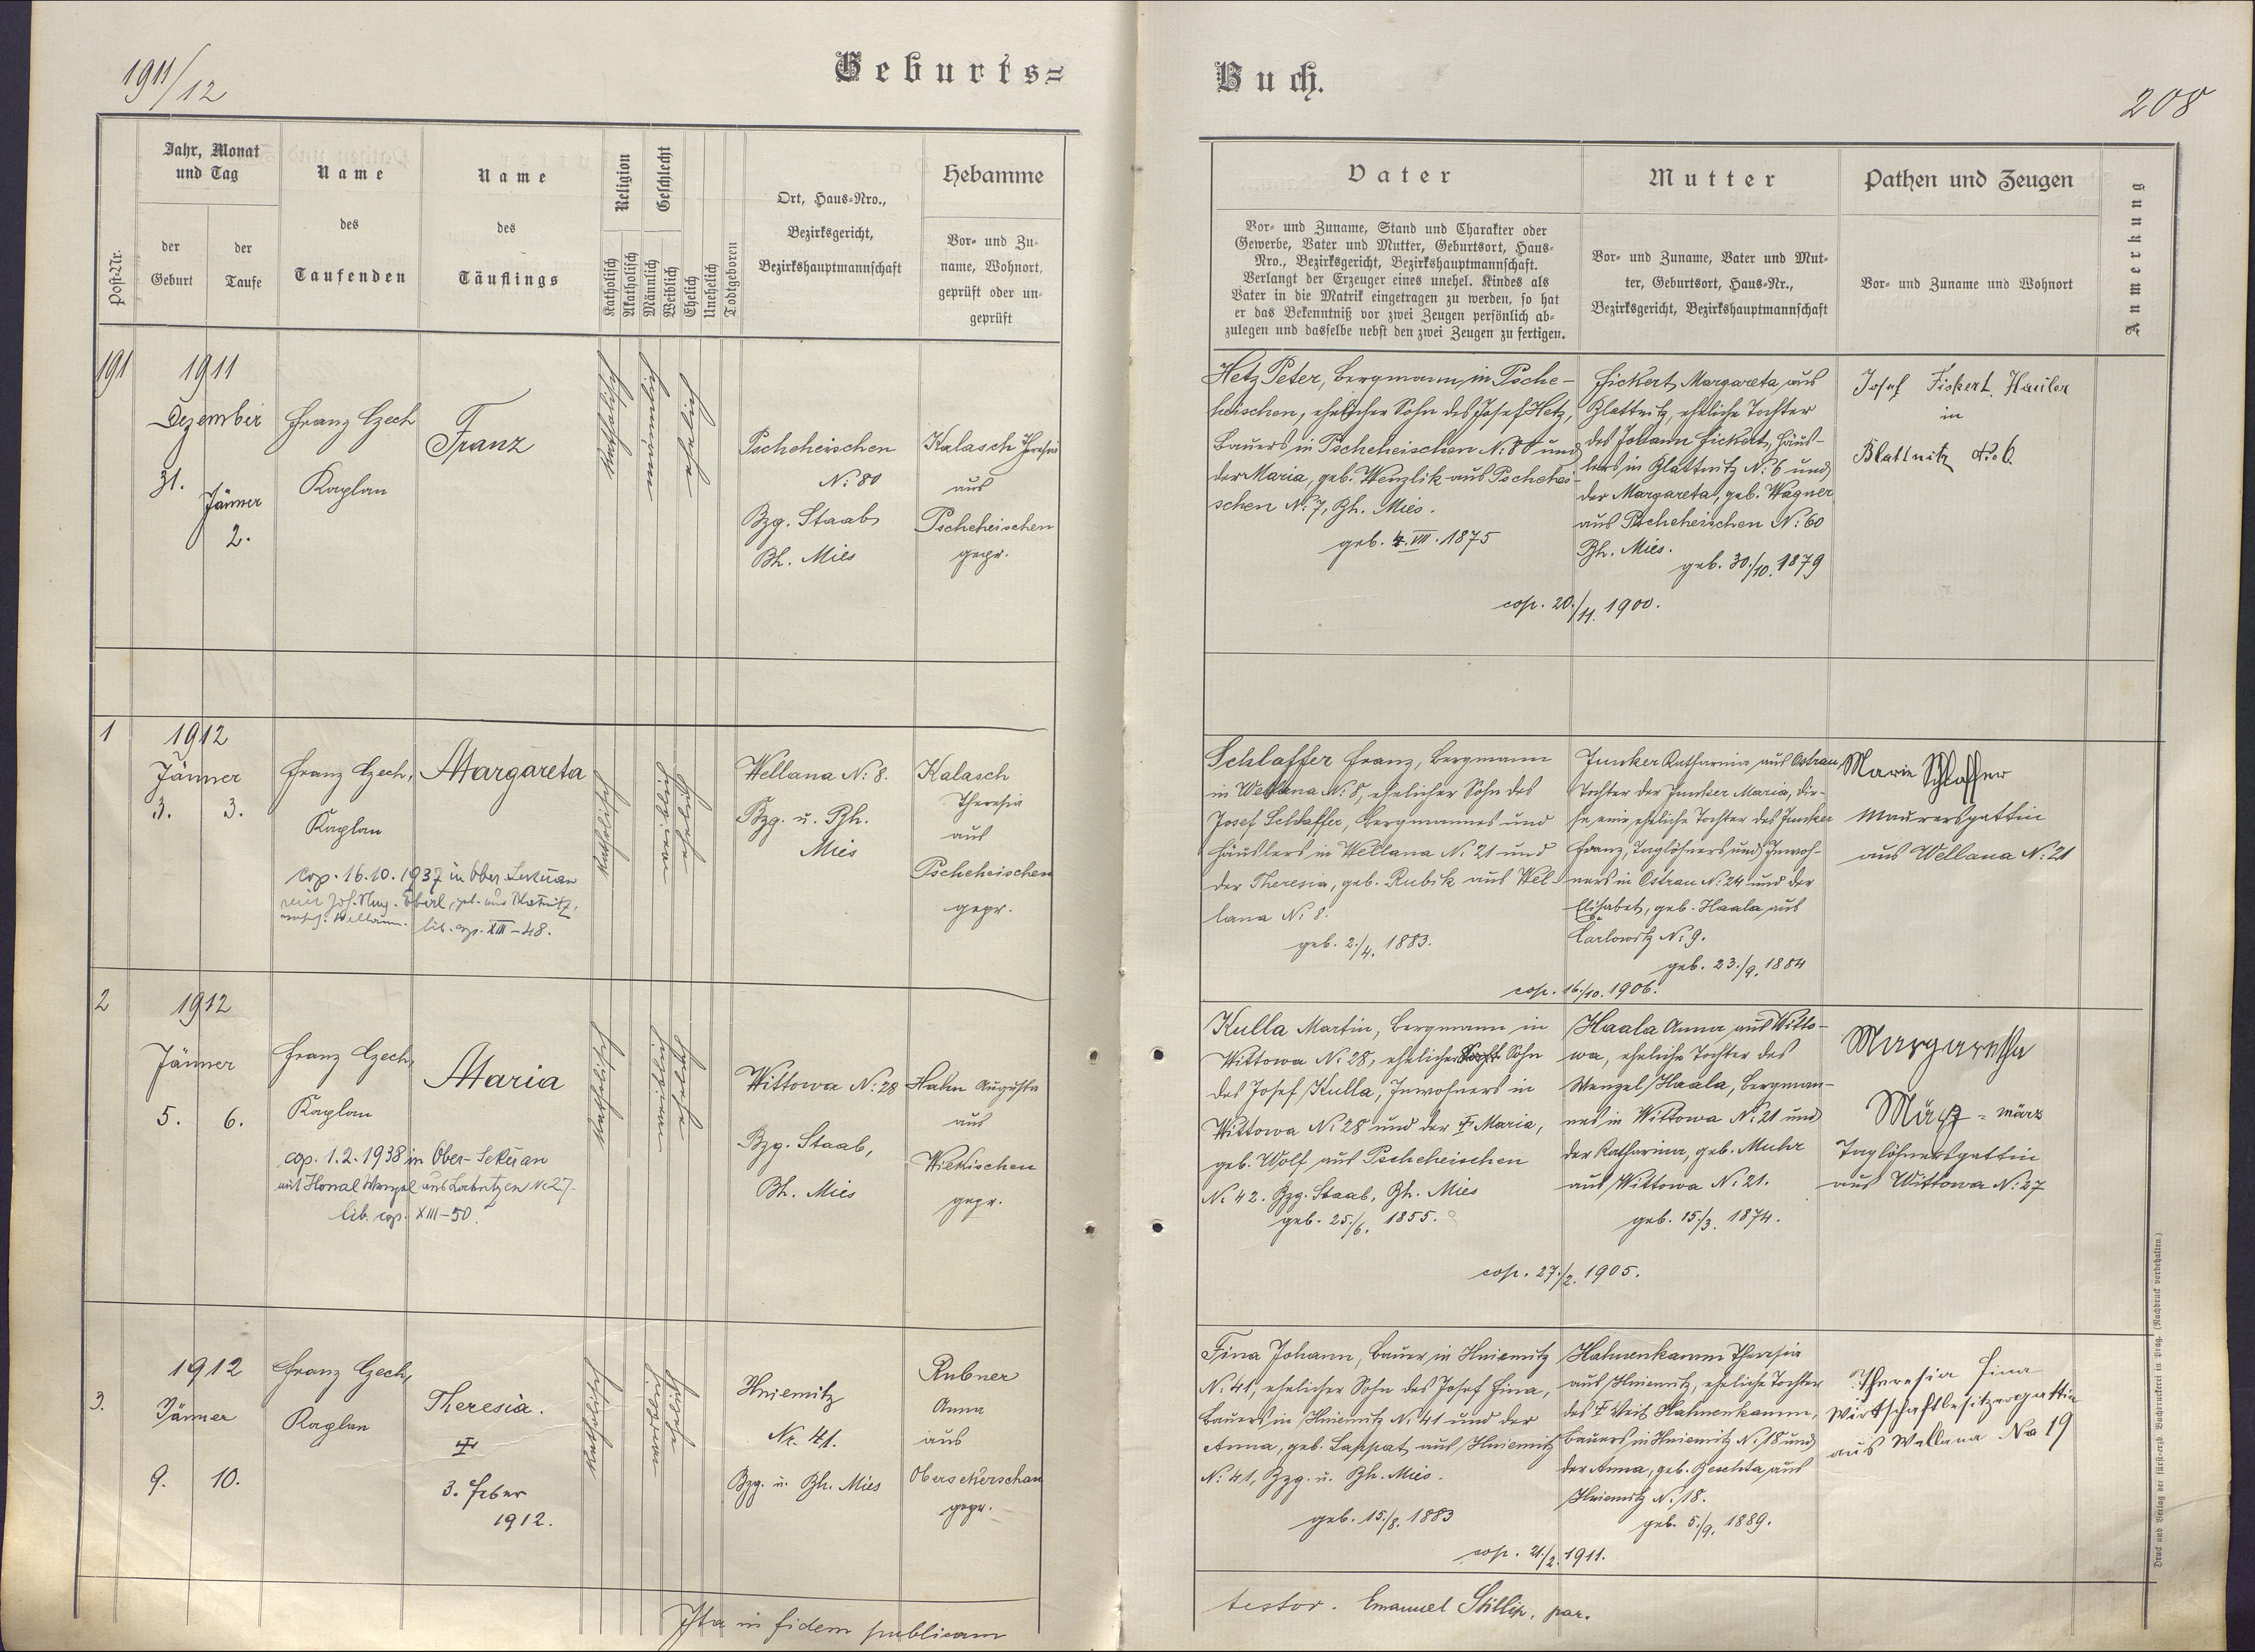 1911/12
Geburts=
Buch.
208
Post-Nr.
Jahr, Monat
und Tag
der
Geburt
der
Taufe
Name
des
Taufenden
Name
des
Täuflings
Religion
Katholisch
Akatholisch
Geschlecht
Männlich
Weiblich
Ehelich
Unehelich
Todtgeboren
Ort, Haus-Nro.,
Bezirksgericht,
Bezirkshauptmannschaft
Hebamme
Vor- und Zu-
name, Wohnort,
geprüft oder un-
geprüft
Vater
Vor- und Zuname, Stand und Charakter oder
Gewerbe, Vater und Mutter, Geburtsort, Haus-
Nro., Bezirksgericht, Bezirkshauptmannschaft.
Verlangt der Erzeuger eines unehel. Kindes als
Vater in die Matrik eingetragen zu werden, so hat
er das Bekenntniß vor zwei Zeugen persönlich ab-
zulegen und dasselbe nebst den zwei Zeugen zu fertigen.
Mutter
Vor- und Zuname, Vater und Mut-
ter, Geburtsort, Haus-Nr.,
Bezirksgericht, Bezirkshauptmannschaft
Pathen und Zeugen
Vor- und Zuname und Wohnort
Anmerkung
191
1911
Dezember
31.
Jänner
2.
Franz Czech
Kaplan
Franz
katholisch
männlich
ehelich
Pscheheischen
N: 80
Bzg. Staab
Bh. Mies
Kalasch Theresia
aus
Pscheheischen
gepr.
Hetz Peter, Bergmann in Psche-
heischen, ehelicher Sohn des Josef Hetz,
Bauers in Pscheheischen N: 80 und
der Maria, geb. Wenzlik aus Pschehei-
schen N: 7, Bh. Mies.
geb. 4. VII. 1875
Fickert Margareta, aus
Blattnitz, eheliche Tochter
des Johann Fickert, Häus-
lers in Blattnitz N: 6 und
der Margareta, geb. Wagner
aus Pscheheischen N: 60
Bh. Mies.
geb. 30./10. 1879
cop. 20./11. 1900.
Josef Fickert, Häusler
in
Blattnitz No. 6.
1
1912
Jänner
3. 3.
Franz Czech,
Kaplan
Margareta
cop. 16.10.1937 in Ober Sekeran
lib. cop. XIII-48.
katholisch
weiblich
ehelich
Wellana N: 8.
Bzg. u. Bh.
Mies
Kalasch
Theresia
aus
Pscheheischen
gepr.
Schlaffer Franz, Bergmann
in Wellana N: 8, ehelicher Sohn des
Josef Schlaffer, Bergmannes und
Häuslers in Wellana N: 21 und
der Theresia, geb. Rubik aus Wel-
lana N: 8.
geb. 2./4. 1883.
Junker Katharina aus Ostrau,
Tochter der Junker Maria, die-
se eine eheliche Tochter des Junker
Franz, Taglöhners und Inwoh-
ners in Ostrau N: 24 und der
Elisabet, geb. Haala aus
Carlowitz N: 9.
geb. 23./9. 1884
cop. 16./10. 1906.
Marie Schlaffer
Maurersgattin
aus Wellana N: 21
2
1912
Jänner
5. 6.
Franz Czech,
Kaplan
Maria
cop. 1.2.1938 in Ober-Sekeran
mit Honal Wenzel aus N: 27.
lib. cop. XIII-50.
katholisch
weiblich
ehelich
Wittowa N: 28
Bzg. Staab,
Bh. Mies
Hahn Augusta
aus
Wiekischen
gepr.
Kulla Martin, Bergmann in
Wittowa N: 28, ehelicher Sohn
des Josef Kulla, Inwohners in
Wittowa N: 28 und der † Maria,
geb. Wolf aus Pscheheischen
N: 42. Bzg. Staab, Bh. Mies
geb. 25./6. 1855.
Haala Anna aus Witto-
wa, eheliche Tochter des
Wenzel Haala, Bergman-
nes in Wittowa N: 21 und
der Katharina, geb. Muhr
aus Wittowa N: 21.
geb. 15./3. 1874.
cop. 27./2. 1905.
Margaretha
März = märz
Taglöhnersgattin
aus Wittowa N: 27
3.
1912
Jänner
9. 10.
Franz Czech,
Kaplan
Theresia.
†
3. Feber
1912.
katholisch
weiblich
ehelich
Hniemitz
Nr. 41.
Bzg. u. Bh. Mies
Rubner
Anna
aus
Obersekerschan
gepr.
Fina Johann, Bauer in Hniemitz
N: 41, ehelicher Sohn des Josef Fina,
Bauers in Hniemitz N: 41 und der
Anna, geb. Lappat aus Hniemitz
N: 41, Bzg. u. Bh. Mies.
geb. 15./8. 1883
Hahnenkamm Theresia
aus Hniemitz, eheliche Tochter
des † Veit Hahnenkamm,
Bauers in Hniemitz N: 18 und
der Anna, geb. Beschta aus
Hniemitz N: 18.
geb. 5./9. 1889.
cop. 21./2. 1911.
Theresia Fina
Wirtschaftsbesitzersgattin
aus Wellana No 19
Ita in fidem publicam
testor. Emanuel Stillip, par.
Druck und Verlag der fürst-erzb. Buchdruckerei in Prag. (Nachdruck vorbehalten.)